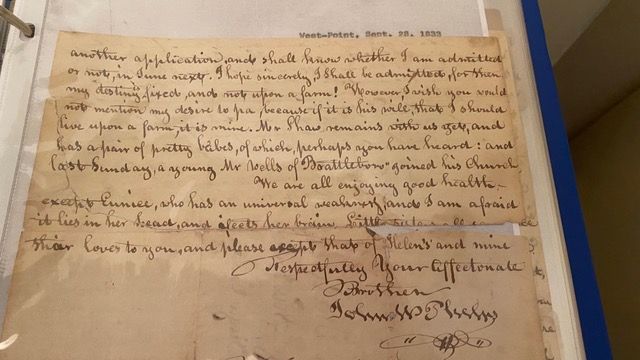 West-Point, Sept. 28, 1833
another application, and shall know whether I am admitted
or not, in June next. I hope sincerely I shall be admitted, for then
my destiny is fixed, and not upon a farm! However, I wish you would
not mention my desire to pa, because if it is his will, that I should
live upon a farm, it is mine. Mr Shaw remains with us yet, and
has a pair of pretty babes, of which, perhaps you have heard: and
last Sunday, a young Mr Wells of "Brattleboro" joined his Church
We are all enjoying good health
except Eunice, who has an universal weakness, and I am afraid
it lies in her head, and afects her brain.
thiar loves to you, and please except that of Helen's and mine
Respectfully Your Affectonate
Brother
John W Phelps